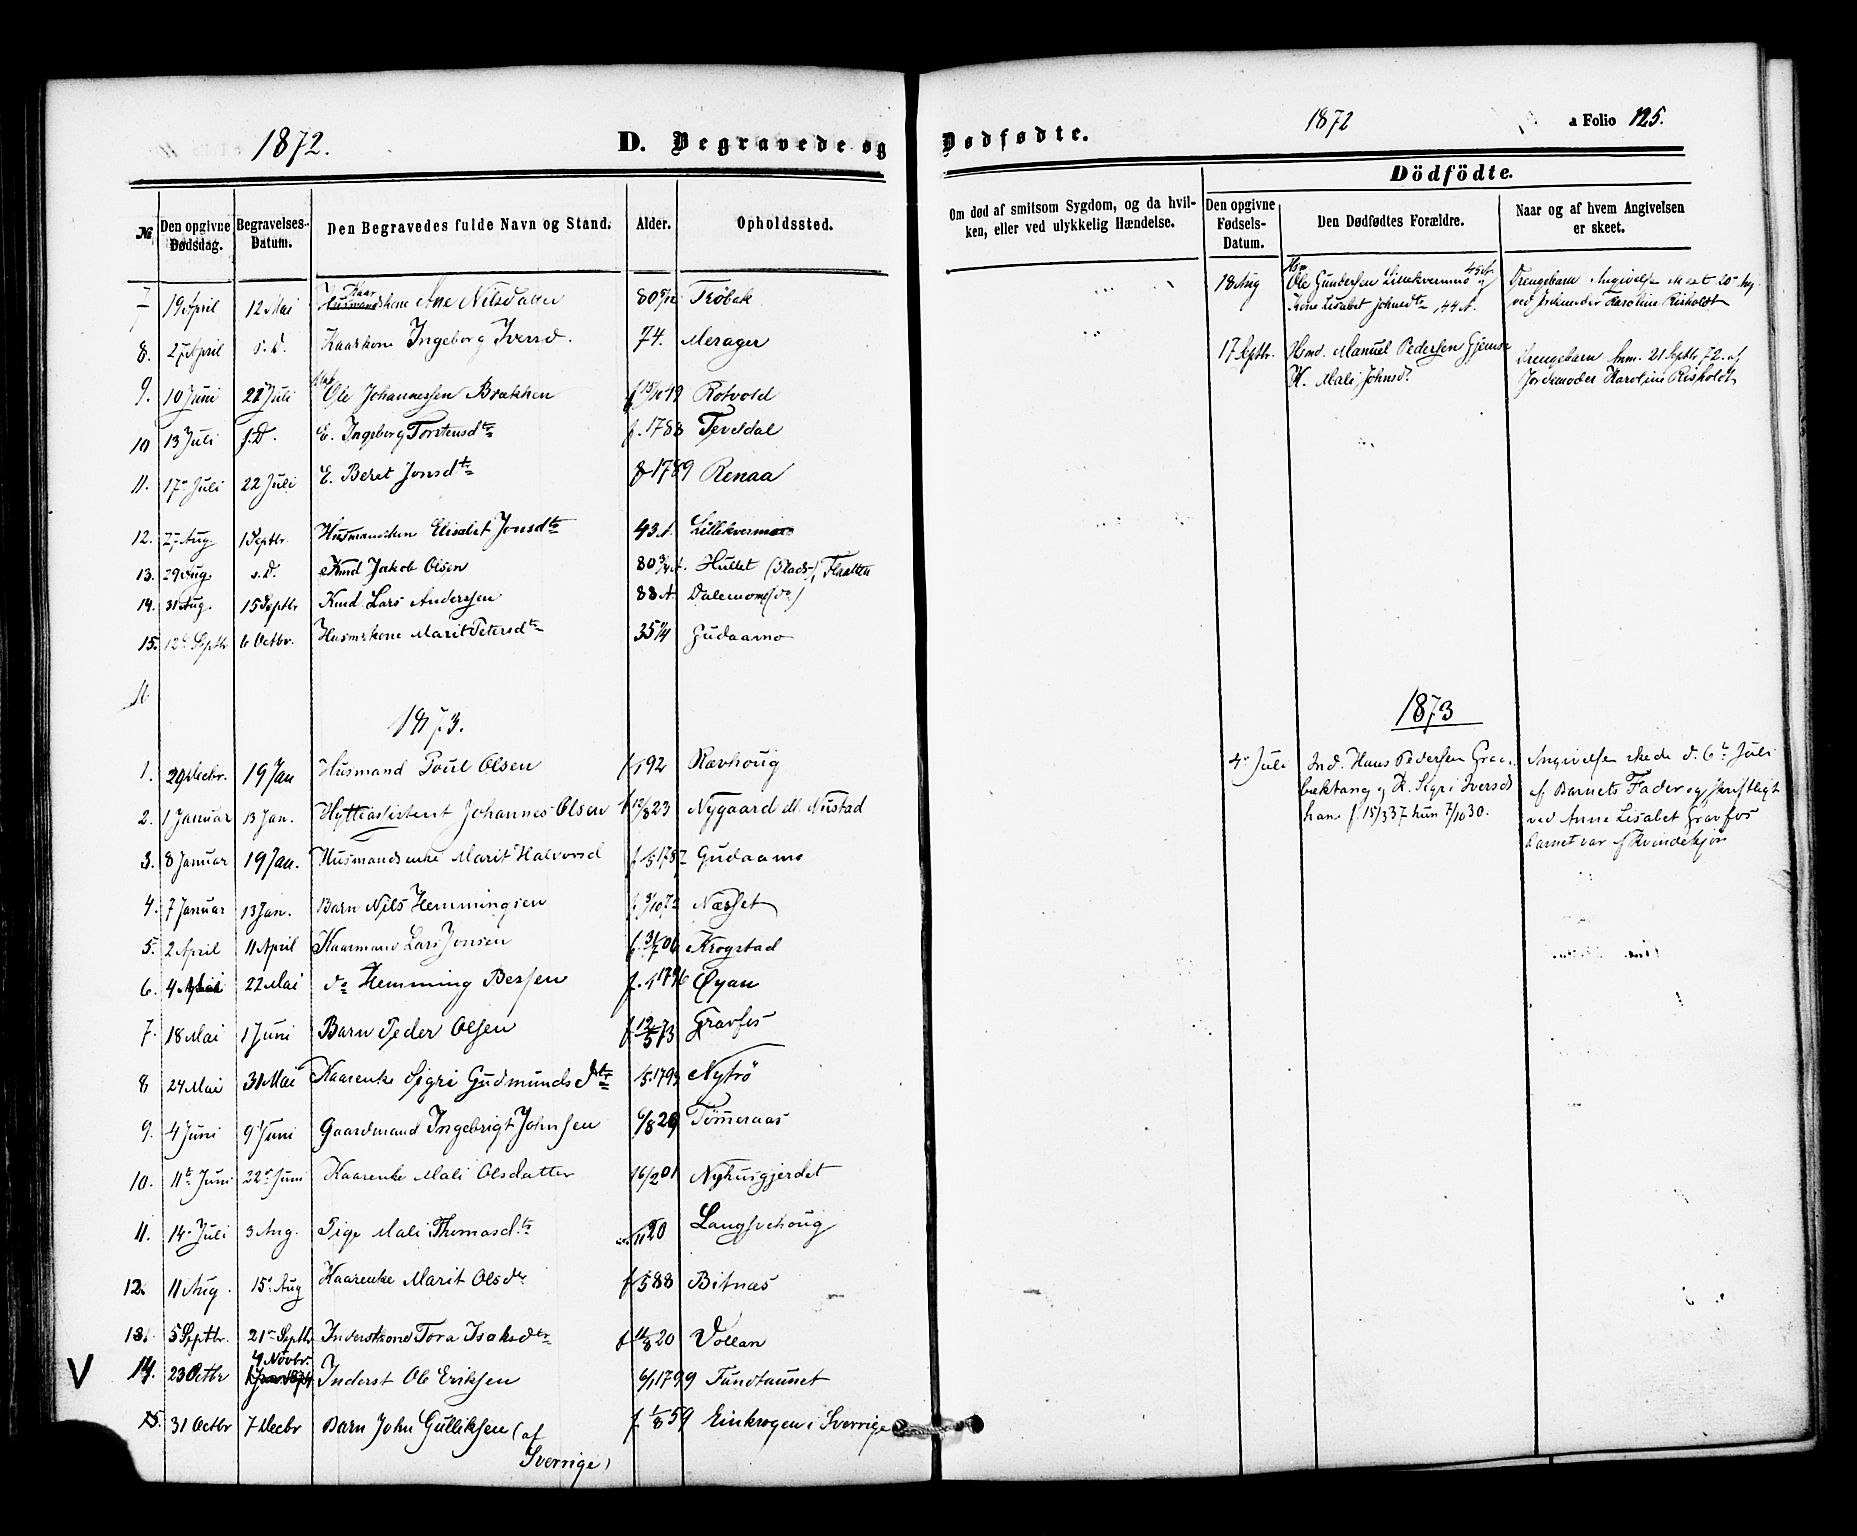 1872.
D. Begravede og
Dødfødte.
1872
a Folio 125.
№
Den opgivne Dødsdag.
Begravelses-Datum.
Den Begravedes fulde Navn og Stand.
Alder.
Opholdssted.
Om død af smitsom Sygdom, og da hvilken, eller ved ulykkelig Hændelse.
Dödfödte.
Den opgivne Fødsels-Datum.
Den Dødfødtes Forældre.
Naar og af hvem Angivelsen er skeet.
7 19 April 12 Mai Kaar Husmandskone Ane Nilsdatter Trøbak
8. 27 April s. D. Kaarkone Ingeborg Iversd. 74. Merager
9. 10 Juni 22 Juli Ole Johannessen Brækken Rotvold
10 13 Juli s. D. E. Ingeborg Torstensdtr f. 1783 Teveldal
11. 17de Juli 22 Juli E. Beret Jonsdtr 1789 Renaa
12. 27 Aug. 1 Septbr. Elisabet Jonsdtr 43 A. Lillekvernmo
13. 29 Aug. s. D. Kmd Jakob Olsen 80 3/4 A. Hullet (Flaatten
14. 31 Aug. 15 Septbr Kmd Lars Anderssen 83 A. Dalemomo (do)
15. 12te Septbr 6 Octbr. Husmskone Marit Petersdtr 35 Gudaamo
1873.
1. 29 Decbr. 19 Jan Husmand Poul Olsen f. 92 Rævhoug
2. 1 Januar 13 Jan. Hytteassistent Johannes Olsen f 823 Nygaard dl. Nustad
3. 8 Januar 19 Jan. Husmandsenke Marit Halvorsd f. 1787 Gudaamo
4. 7 Januar 13 Jan. Barn Nils Hemmingsen f. 3/10 72 Næsset
5. 2 April 11 April Kaarmand Lars Jonsen f. 31/7 06 Krogstad
6. 4 Mai 22 Mai do Hemming Bersen f. 1796 Øyan
7. 18 Mai 1 Juni Barn Peder Olsen f 12/5 73 Gravfos
8 24 Mai 31 Mai Kaarenke Sigri Gudmundsdtr 1793 Nytrø
9. 4 Juni 9 Juni Gaardmand Ingebrigt Johnsen 6/8 29 Tømeraas
10. 11te Juni 22de Juni Kaarenke Mali Olsdatter 16/2 01 Nyhusgjerdet
11. 14de Juli 3 Aug. Pige Mali Thomasdtr 20
12. 11 Aug. 15de Aug Kaarenke Marit Olsdr f 88 Bitnæs
13. 5 Septbr. 21de Septbr Inderstkone Tora Isaksdtr f 20 Vollan
V 14. 23 Octbr 4 Novbr. Inderst Ole Eriksen 1799 Fundtaunet
15. 31 Octbr 7 Decbr Barn John Gulliksen (af f. 1/8 59 Einkrogen i Sverrige
Sverrige)
18 Aug Hsm Ole Gundersen Lillekvernmo 45 A. og
Kone Lisabet Johnsdtr 44 A.
Drengebarn Angivelse skeet 20de Aug
ved Jordemoder Karoline Risholdt
17 Septbr. Hsmd. Manuel Pedersen Gjemse
K. Mali Johnsd.
Drengebarn Anm. 21 Septbr 72. af
Jordemoder Karoline Risholdt
1873
4de Juli Ind. Hans Pedersen Graa-
bæktang og K. Sigri Iversd
han f. 15/3 37 hun 7/10 30.
Angivelsen skede d. 6te Juli
af Barnets Fader og skriftligt
ved Anne Lisabet Gravfos
Barnet var af Kvindekjøn